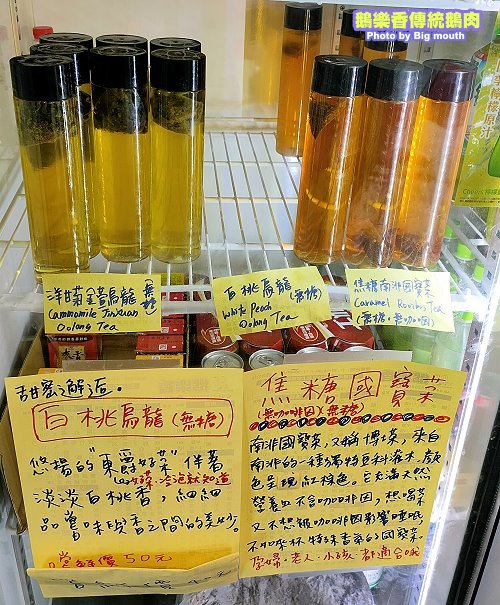 鵝樂香傳統鵝肉
Photo by Big mouth
洋甘菊金萱烏龍
(無糖)
Cammomile Jinxuan
Oolong Tea
白桃烏龍
(無糖)
White Peach
Oolong Tea
焦糖南非國寶茶
Caramel Rooibos Tea
(無糖・無咖啡因)
甜蜜邂逅。
白桃烏龍(無糖)
悠揚的"東爵好茶"伴著
淡淡白桃香,細細
品嘗味與香之間的美妙。
嚐鮮價50元
焦糖國寶茶
(無咖啡因)(無糖)
南非國寶茶,又稱博士茶,來自
南非的一種獨特豆科灌木,飲
色呈現紅棕色。它充滿天然
營養且不含咖啡因,想喝茶
又不想被咖啡因影響睡眠,
不如來杯特殊香氣的國寶茶
孕婦・老人・小孩都適合哦